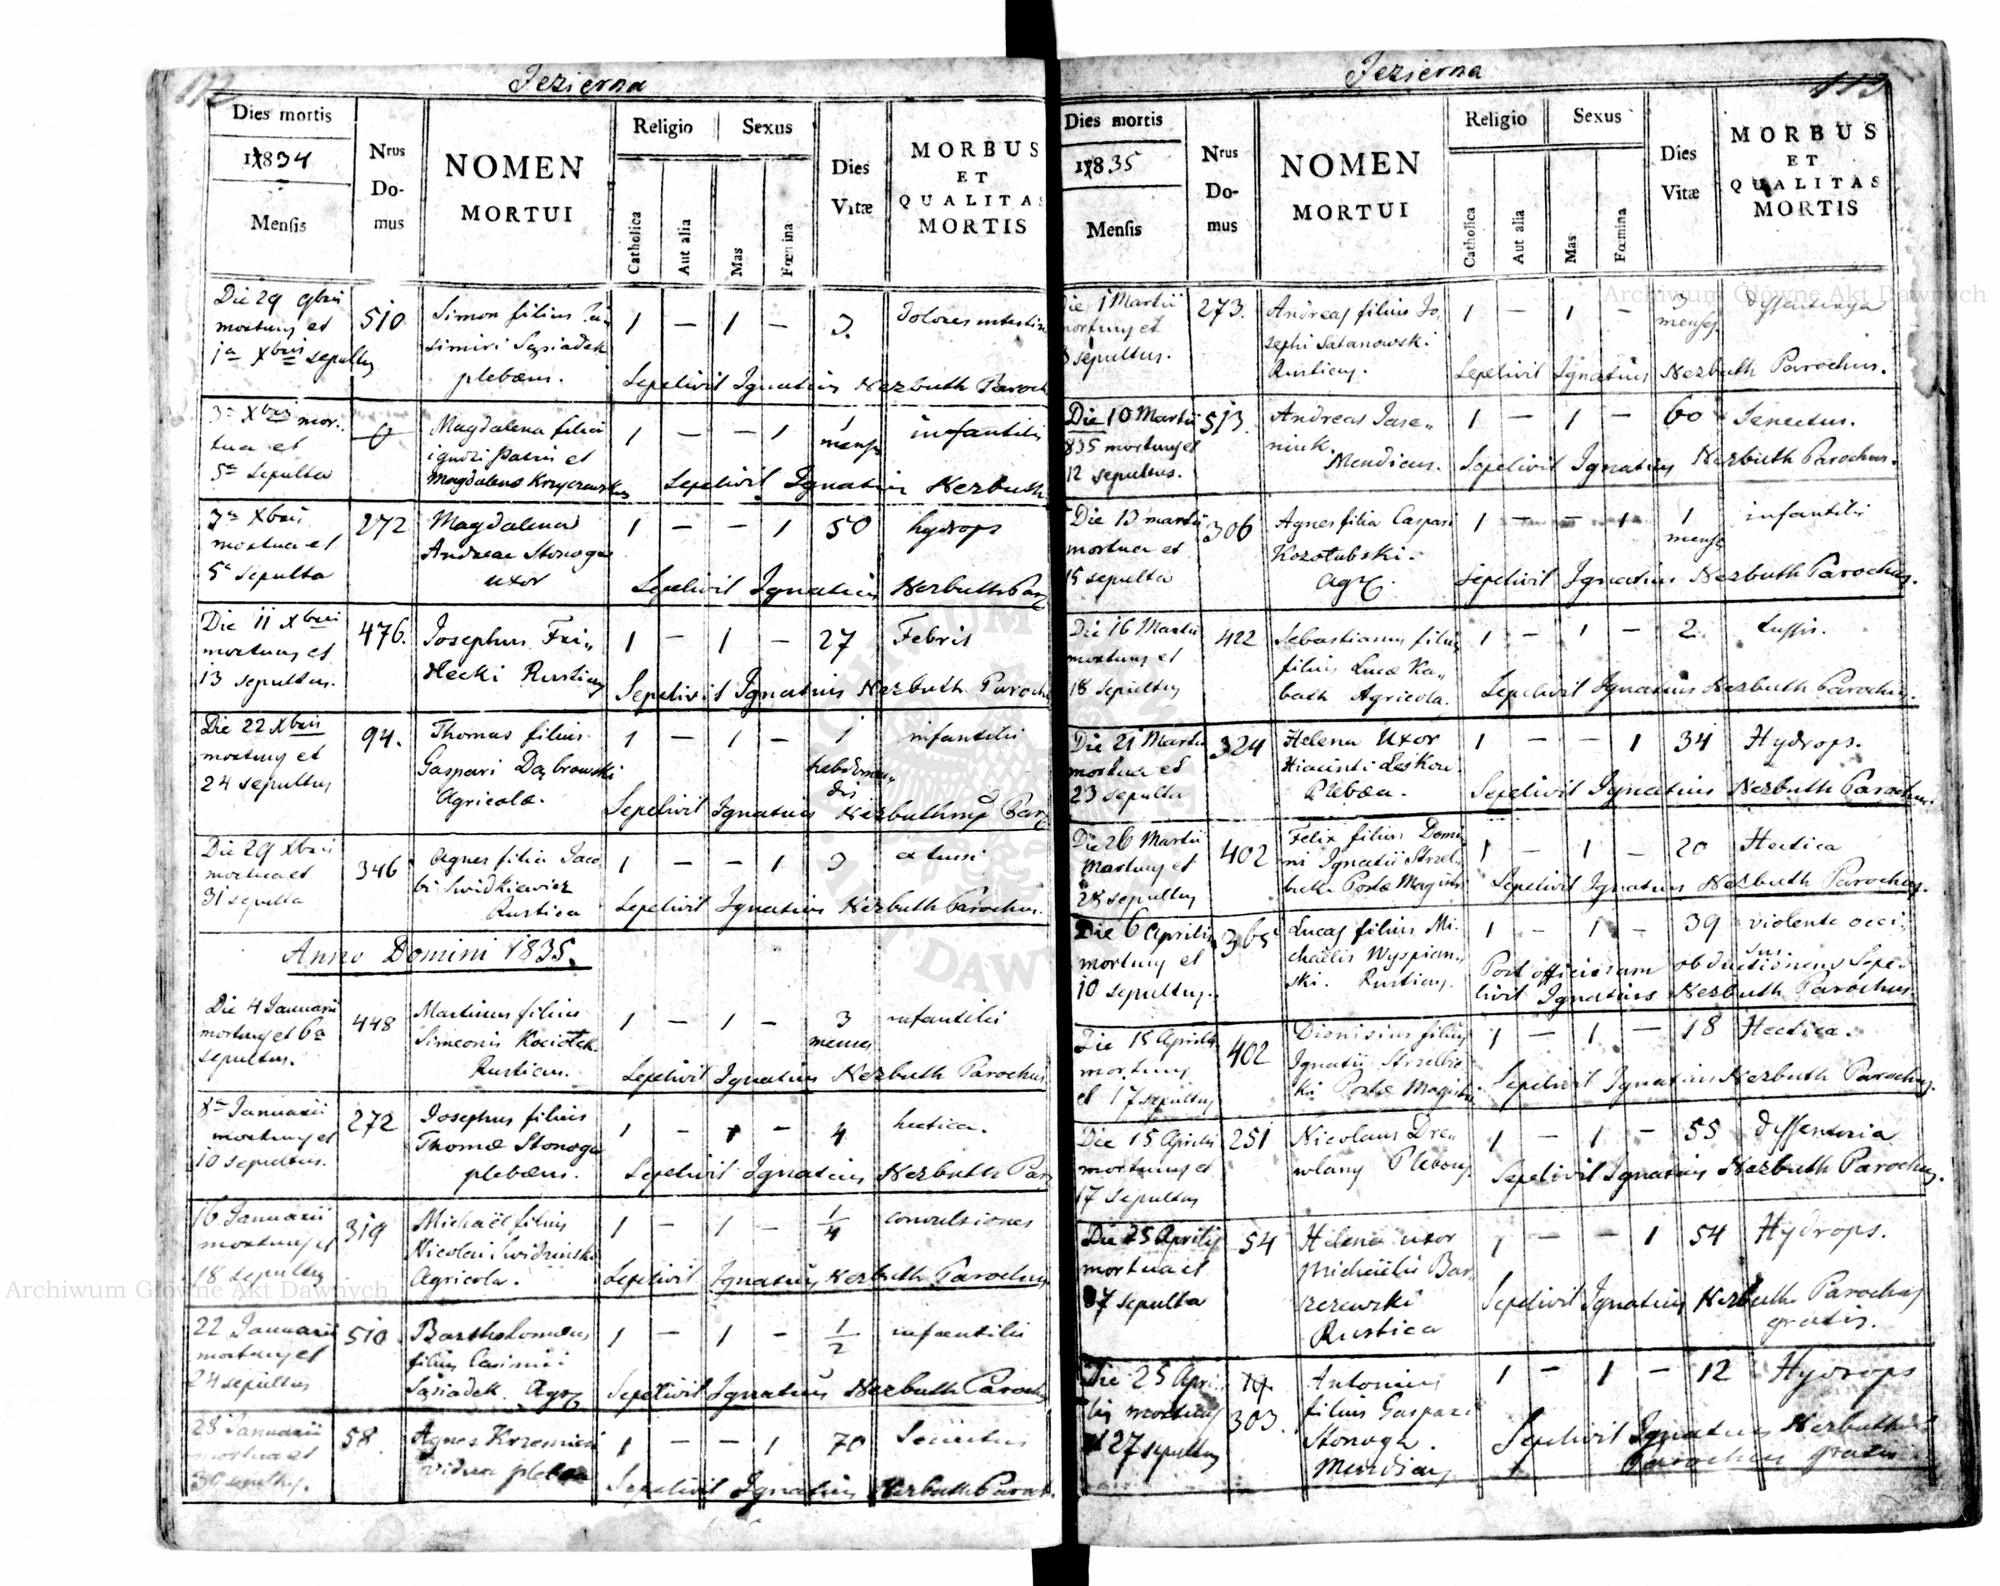 112
Jezierna
Dies mortis
1834
Mensis
Nrus
Do-
mus
NOMEN
MORTUI
Religio
Sexus
Catholica
Aut alia
Mas
Fœmina
Dies
Vitæ
MORBUS
ET
QUALITAS
MORTIS
Die 29 9bris
mortuus et
1a Xbris sepultus
510
Simon filius Ca
simiri Sąsiadek
plebæus.
1 — 1 — 3.
Dolores intestin
Sepelivit Ignatius Nerbuth Paroch
3a Xbris mor-
tua et
5a sepulta
0
Magdalena filia
ignoti Patris et
Magdalena
1 — — 1 1
mensis
infantilis
Sepelivit Ignatius Nerbuth
3a Xbris
mortua et
5a sepulta
272
Magdalena
Andreae Stonoga
uxor
1 — — 1 50 hydrops
Sepelivit Ignatius Nerbuth Par
Die 11 Xbris
mortuus et
13 sepultus.
476.
Josephus Fri-
Hecki Rusticus
1 — 1 — 27 Febris
Sepelivit Ignatius Nerbuth Paroch
Die 22 Xbris
mortuus et
24 sepultus
94.
Thomas filius
Gaspari Dąbrowski
Agricolæ.
1 — 1 — 1
hebdoma-
dis
infantilis
Sepelivit Ignatius Nerbuth Par
Die 29 Xbris
mortua et
31 sepulta
346
Agnes filia Jaco
bi Swidkiewicz
Rustica
1 — — 1 3 ex tussi
Sepelivit Ignatius Nerbuth Parochus.
Anno Domini 1835.
Die 4 Januarii
mortuus et 6a
sepultus.
448
Martinus filius
Simeonis Kociołek
Rusticus.
1 — 1 — 3
menses
infantilis
Sepelivit Ignatius Nerbuth Parochus
8a Januarii
mortuus et
10 sepultus.
272
Josephus filius
Thomæ Stonoga
plebæus.
1 — 1 — 4 hectica.
Sepelivit Ignatius Nerbuth Par
16 Januarii
mortuus et
18 sepultus
319
Michaël filius
Nicolai Swidzinski
Agricola.
1 — 1 — 1/4 convulsiones
Sepelivit Ignatius Nerbuth Parochus
22 Januarii
mortuus et
24 sepultus
510.
Bartholomæus
filius Casimiri
Sąsiadek. Agr
1 — 1 — 1/2 infantilis
Sepelivit Ignatius Nerbuth Parochus
28 Januarii
mortua et
30 sepulta.
58.
Agnes
vidua plebæa
1 — — 1 70 Senectus
Sepelivit Ignatius Nerbuth Paroch.
113
Jezierna
Dies mortis
1835
Mensis
Nrus
Do-
mus
NOMEN
MORTUI
Religio
Sexus
Catholica
Aut alia
Mas
Fœmina
Dies
Vitæ
MORBUS
ET
QUALITAS
MORTIS
Die 1 Martii
mortuus et
3 sepultus.
273.
Andreas filius Jo-
sephi Satanowski
Rusticus.
1 — 1 — 3
menses
Sepelivit Ignatius Nerbuth Parochus.
Die 10 Martii
835 mortuus et
12 sepultus.
513.
Andreas Jase-
niuk.
Mendicus.
1 — 1 — 60 Senectus.
Sepelivit Ignatius Nerbuth Parochus.
Die 13 martii
mortua et
15 sepulta
306
Agnes filia Caspari
Kozołubski.
Agr.
1 — — 1 1
mensis
infantilis
Sepelivit Ignatius Nerbuth Parochus.
Die 16 Martii
mortuus et
18 sepultus
422
Sebastianus filius
filius Lucæ Ka-
bath Agricola.
1 — 1 — 2. tussis.
Sepelivit Ignatius Nerbuth Parochus.
Die 21 Martii
mortua et
23 sepulta
324
Helena Uxor
Hiacinti
Plebæa.
1 — — 1 34 Hydrops.
Sepelivit Ignatius Nerbuth Parochus.
Die 26 Martii
Mortuus et
28 sepultus
402
Felix filius Domi-
ni Ignatii
Postæ Magistr
1 — 1 — 20 Hectica
Sepelivit Ignatius Nerbuth Parochus.
Die 6 Aprilis
mortuus et
10 sepultus.
365
Lucas filius Mi-
chaëlis Wyspian-
ski. Rusticus.
1 — 1 — 39 violente occi-
sus
Post officiosam obductionem Sepe-
livit Ignatius Nerbuth Parochus
Die 15 Aprilis
mortuus
et 17 sepultus
402
Dionisius filius
Ignatii Strzelbic-
ki Postæ Magistri
1 — 1 — 18 Hectica.
Sepelivit Ignatius Nerbuth Parochus.
Die 15 Aprilis
mortuus et
17 sepultus
251
Nicolaus Dre-
wlany Plebeus.
1 — 1 — 55 dyssenteria
Sepelivit Ignatius Nerbuth Parochus.
Die 25 Aprilis
mortua et
27 sepulta
54
Helena uxor
Michaëlis Bar-
szczewski
Rustica
1 — — 1 54 Hydrops.
Sepelivit Ignatius Nerbuth Parochus
gratis.
Die 25 Apri-
lis mortuus
et 27 sepultus
303.
Antonius
filius Gaspari
Stonoga.
Mendicus
1 — 1 — 12 Hydrops
Sepelivit Ignatius Nerbuth
Parochus gratis
Archiwum Główne Akt Dawnych
Archiwum Główne Akt Dawnych